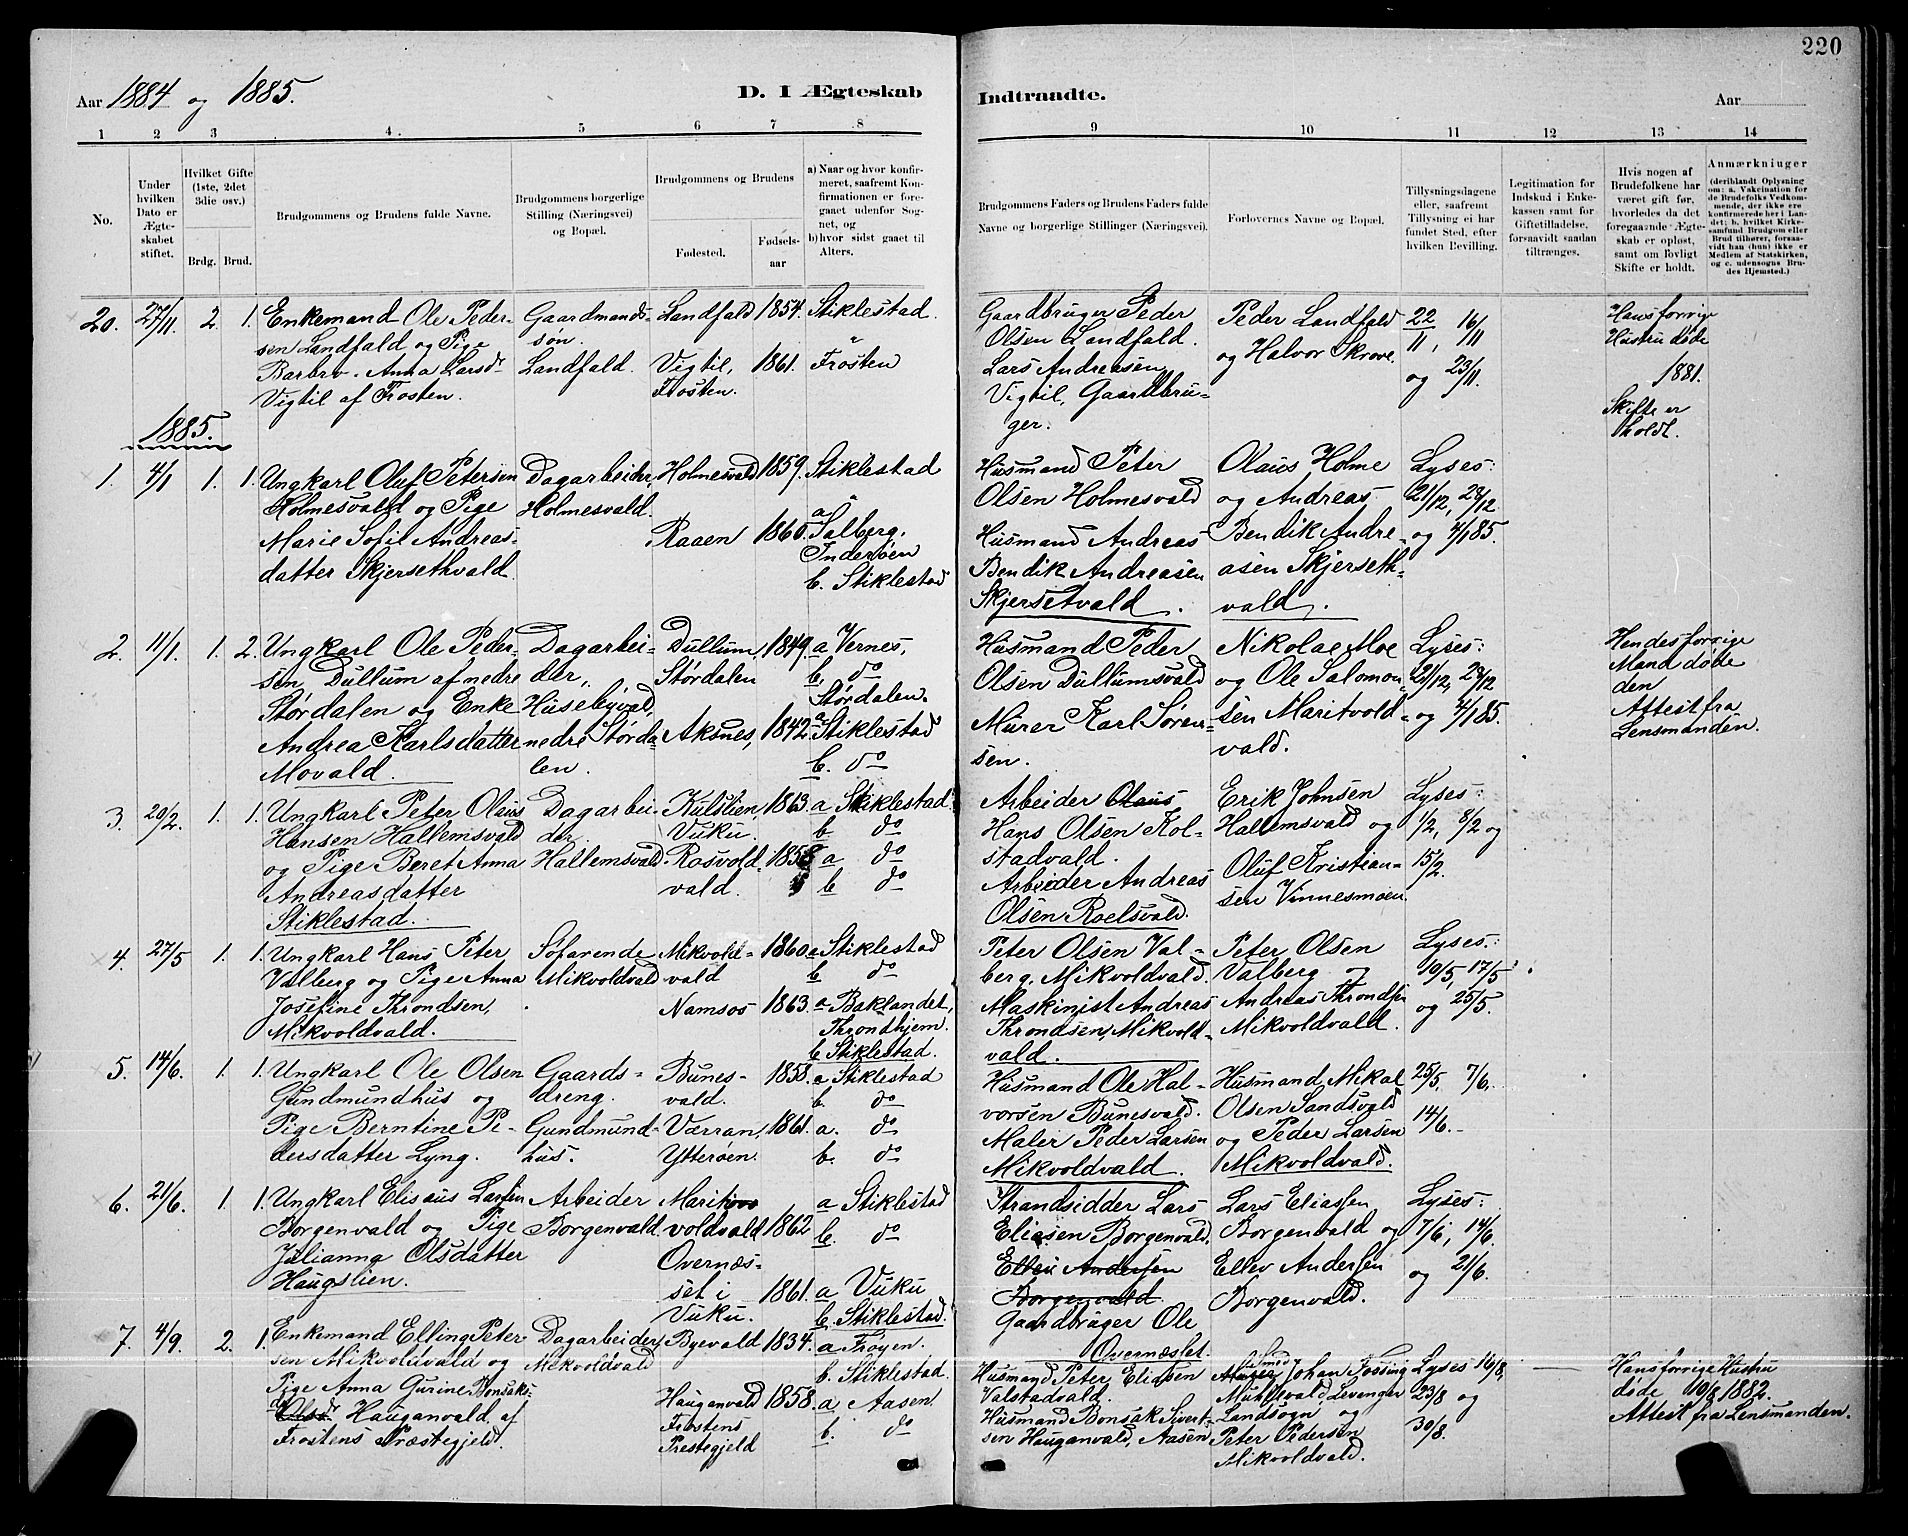 220
Aar 1884 og 1885.
D. I Ægteskab Indtraadte.
Aar
1 2 3 4 5 6 7 8 9 10 11 12 13 14
No.
Under hvilken Dato er Ægteskabet stiftet.
Hvilket Gifte (1ste, 2det 3die osv.)
Brdg. Brud.
Brudgommens og Brudens fulde Navne.
Brudgommens borgerlige Stilling (Næringsvei) og Bopæl.
Brudgommens og Brudens
Fødested.
Fødselsaar
a) Naar og hvor konfirmeret, saafremt Konfirmationen er foregaaet udenfor Sognet, og
b) hvor sidst gaaet til Alters.
Brudgommens Faders og Brudens Faders fulde Navne og borgerlige Stillinger (Næringsvei).
Forlovernes Navne og Bopæl.
Tillysningsdagene eller, saafremt Tillysning ei har fundet Sted, efter hvilken Bevilling.
Legitimation for Indskud i Enkekassen samt for Giftetilladelse, forsaavidt saadan tiltrænges.
Hvis nogen af Brudefolkene har været gift før, hvorledes da det foregaaende Ægteskab er opløst, samt om lovligt Skifte er holdt.
Anmærkninger
(deriblandt Oplysning om: a. Vakcination for de Brudefolks Vedkommende, der ikke ere konfirmerede her i Landet; b. hvilket Kirkesamfund Brudgom eller Brud tilhører, forsaavidt han (hun) ikke er Medlem af Statskirken, og c. udensogns Brudes Hjemsted.)
20. 27/11 2. 1.
Enkemand Ole Peder-
sen Landfald og Pige
Barbro Anna Larsdr
Vigtil af Frosten.
Gaardmands-
søn.
Landfald.
Landfald 1854. Stiklestad.
Vigtil, 1861. Frosten
Frosten.
Gaardbruger Peder
Olsen Landfald.
Lars Andreasen
Vigtil, Gaardbru-
ger.
Peder Landfald
og Halvor Skrove.
22/11, 16/11
og 23/11.
Hans forrige
Hustru døde
1881.
Skifte er
holdt.
1885.
1. 4/1 1. 1.
Ungkarl Oluf Petersen
Holmesvald og Pige
Marie Sofie Andreas-
datter Skjersethvald.
Dagarbeider,
Holmesvald.
Holmesvald 1859. Stiklestad
Raaen 1860. a Salberg,
Inderøen
b. Stiklestad
Husmand Peter
Olsen Holmesvald
Husmand Andreas
Bendik Andreasen
Skjersetvald.
Olaus Holme
og Andreas
Bendik Andre-
asen Skjerseth-
vald.
Lyses:
21/12, 28/12
og 4/1 85.
2. 11/1. 1. 2.
Ungkarl Ole Peder-
sen Dullum af nedre
Størdalen og Enke
Andrea Karlsdatter
Movald.
Dagarbei-
der,
Husebyvald,
nedre Størda-
len.
Dullum, 1849. a Vernes,
Størdalen b. do
Størdalen.
Aksnes, 1842. a Stiklestad
b. do
Husmand Peder
Olsen Dullumsvald
Murer Karl Søren-
sen.
Nikolae Moe
og Ole Salomon-
sen Maritvold-
vald.
Lyses:
21/12, 28/12
og 4/1 85.
Hendes forrige
Mand døde
den
Attest fra
Lensmanden.
3. 20/2. 1. 1.
Ungkarl Peter Olaus
Hansen Hallemsvald
og Pige Beret Anna
Andreasdatter
Stiklestad.
Dagarbei-
der
Hallemsvald
Kulslien 1863. a Stiklestad
Vuku. b do
Rosvold- 1858 a do
vald. b do
Arbeider Olaus
Hans Olsen Kol-
stadvald.
Arbeider Andreas
Olsen Roelsvald.
Erik Johnsen
Hallemsvald og
Oluf Kristian-
sen Vinnesmoen.
Lyses:
1/2, 8/2 og
15/2.
4. 27/5 1. 1.
Ungkarl Hans Peter
Valberg og Pige Anna
Josefine Throndsen,
Mikvoldvald.
Søfarende
Mikvoldvald
Mikvold- 1860 a Stiklestad
vald b do
Namsos 1863. a Baklandet,
Throndhjem.
b Stiklestad.
Peter Olsen Val-
berg, Mikvoldvald.
Maskinist Andreas
Throndsen, Mikvold-
vald.
Peter Olsen
Valberg og
Andreas Throndsen
Mikvoldvald.
Lyses:
10/5, 17/5
og 25/5.
5. 14/6. 1. 1.
Ungkarl Ole Olsen
Gundmundhus og
Pige Berntine Pe-
dersdatter Lyng.
Gaards-
dreng.
Gundmund-
hus.
Bunes- 1858. a Stiklestad
vald. b. do
Værran, 1861. a. do
Ytterøen. b. do
Husmand Ole Hal-
vorsen Bunesvald.
Maler Peder Larsen
Mikvoldvald.
Husmand Mikal
Olsen Sandsvald
og Peder Larsen
Mikvoldvald.
25/5, 7/6,
14/6.
6. 21/6. 1. 1.
Ungkarl Elisæus Larsen
Borgenvald og Pige
Julianna Olsdatter
Haugslien.
Arbeider
Borgenvald.
Marit a Stiklestad
voldvald 1862 b. do
Overnes-
set i 1861. a Vuku
Vuku. b. Stiklestad.
Strandsidder Lars
Eliasen Borgenvald.
Ellev Andersen
Borgenvald
Gaardbruger Ole
Overneslet.
Lars Eliassen
Borgenvald og
Ellev Anderssen
Borgenvald.
Lyses:
7/6, 14/6.
og 21/6.
7. 4/9. 2. 1.
Enkemand Elling Peter-
sen Mikvoldvald og
Pige Anna Gurine Bonsaks-
dr Olsdr Hauganvald, af
Frostens Præstegjeld.
Dagarbeider,
Mikvoldvald
Byevald 1834. a Frøyen.
b. Stiklestad.
Hauganvald 1858. a Aasen.
Frostens b. do
Prestegjeld
Husmand Peter Elidsen
Valstadvald.
Husmand Bonsak Sivert-
sen Hauganvald, Aasen
Smed Johan Fossing
Muhlevald, Levanger
Landsogn og
Peter Pedersen
Mikvoldvald.
Lyses 16/8,
23/8 og
30/8.
Hans forrige Hustru
døde 10/8 1882.
Attest fra Lensmanden.